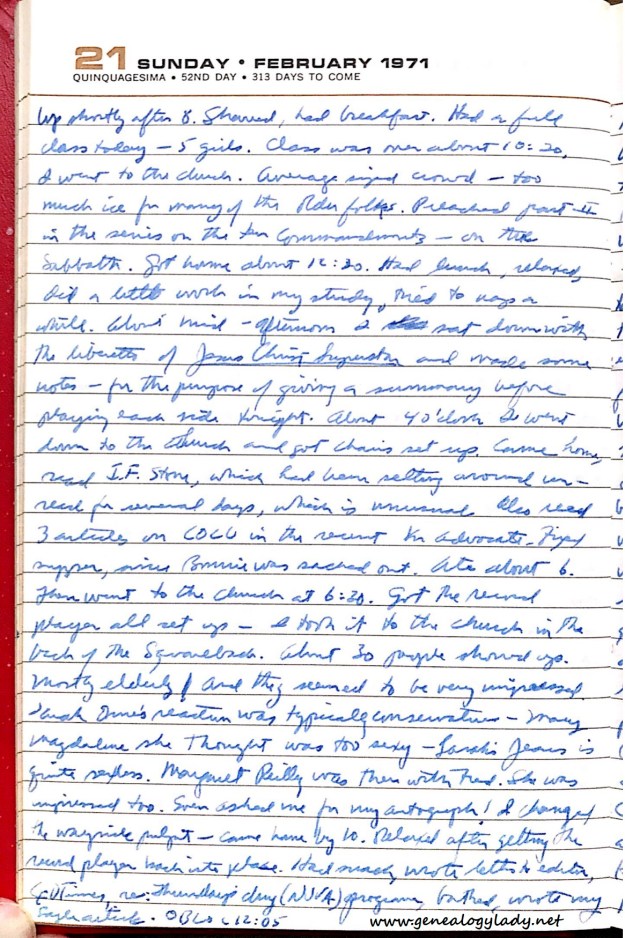 21 SUNDAY • FEBRUARY 1971
QUINQUAGESIMA • 52ND DAY • 313 DAYS TO COME
Up shortly after 8. Shaved, had breakfast. Had a full
class today – 5 girls. Class was over about 10:20,
I went to the church. Average sized crowd – too
much ice for many of the older folks. Preached part
in the series on the ten Commandments – on the
Sabbath. Got home about 12:30. Had lunch, relaxed,
did a little work in my study, tried to nap a
while. About mid-afternoon I sat down with
the libretto of Jesus Christ Superstar and made some
notes – for the purpose of giving a summary before
playing each side tonight. About 4 o'clock I went
down to the church and got chairs set up. Came home,
read I.F. Stone, which had been setting around un-
read for several days, which is unusual. Also read
3 articles on COCU in the recent Xn Advocate. Fixed
supper, since Bonnie was sacked out. Ate about 6.
Then went to the church at 6:30. Got the record
player all set up – I took it to the church in the
back of the Squareback. About 30 people showed up.
Mostly elderly! And they seemed to be very impressed.
Sarah reaction was typically conservative – Mary
Magdalene she thought was too sexy – Sarah's Jesus is
quite sexless. Margaret Reilly was there with Fred. She was
impressed too. Even asked me for my autograph! I changed
the wayside pulpit – came home by 10. Relaxed after getting the
record player back into place. Had snack, wrote letter to editor,
Times, re: Thursday's (NIVA) program, bathed, wrote my
12:05
www.genealogylady.net